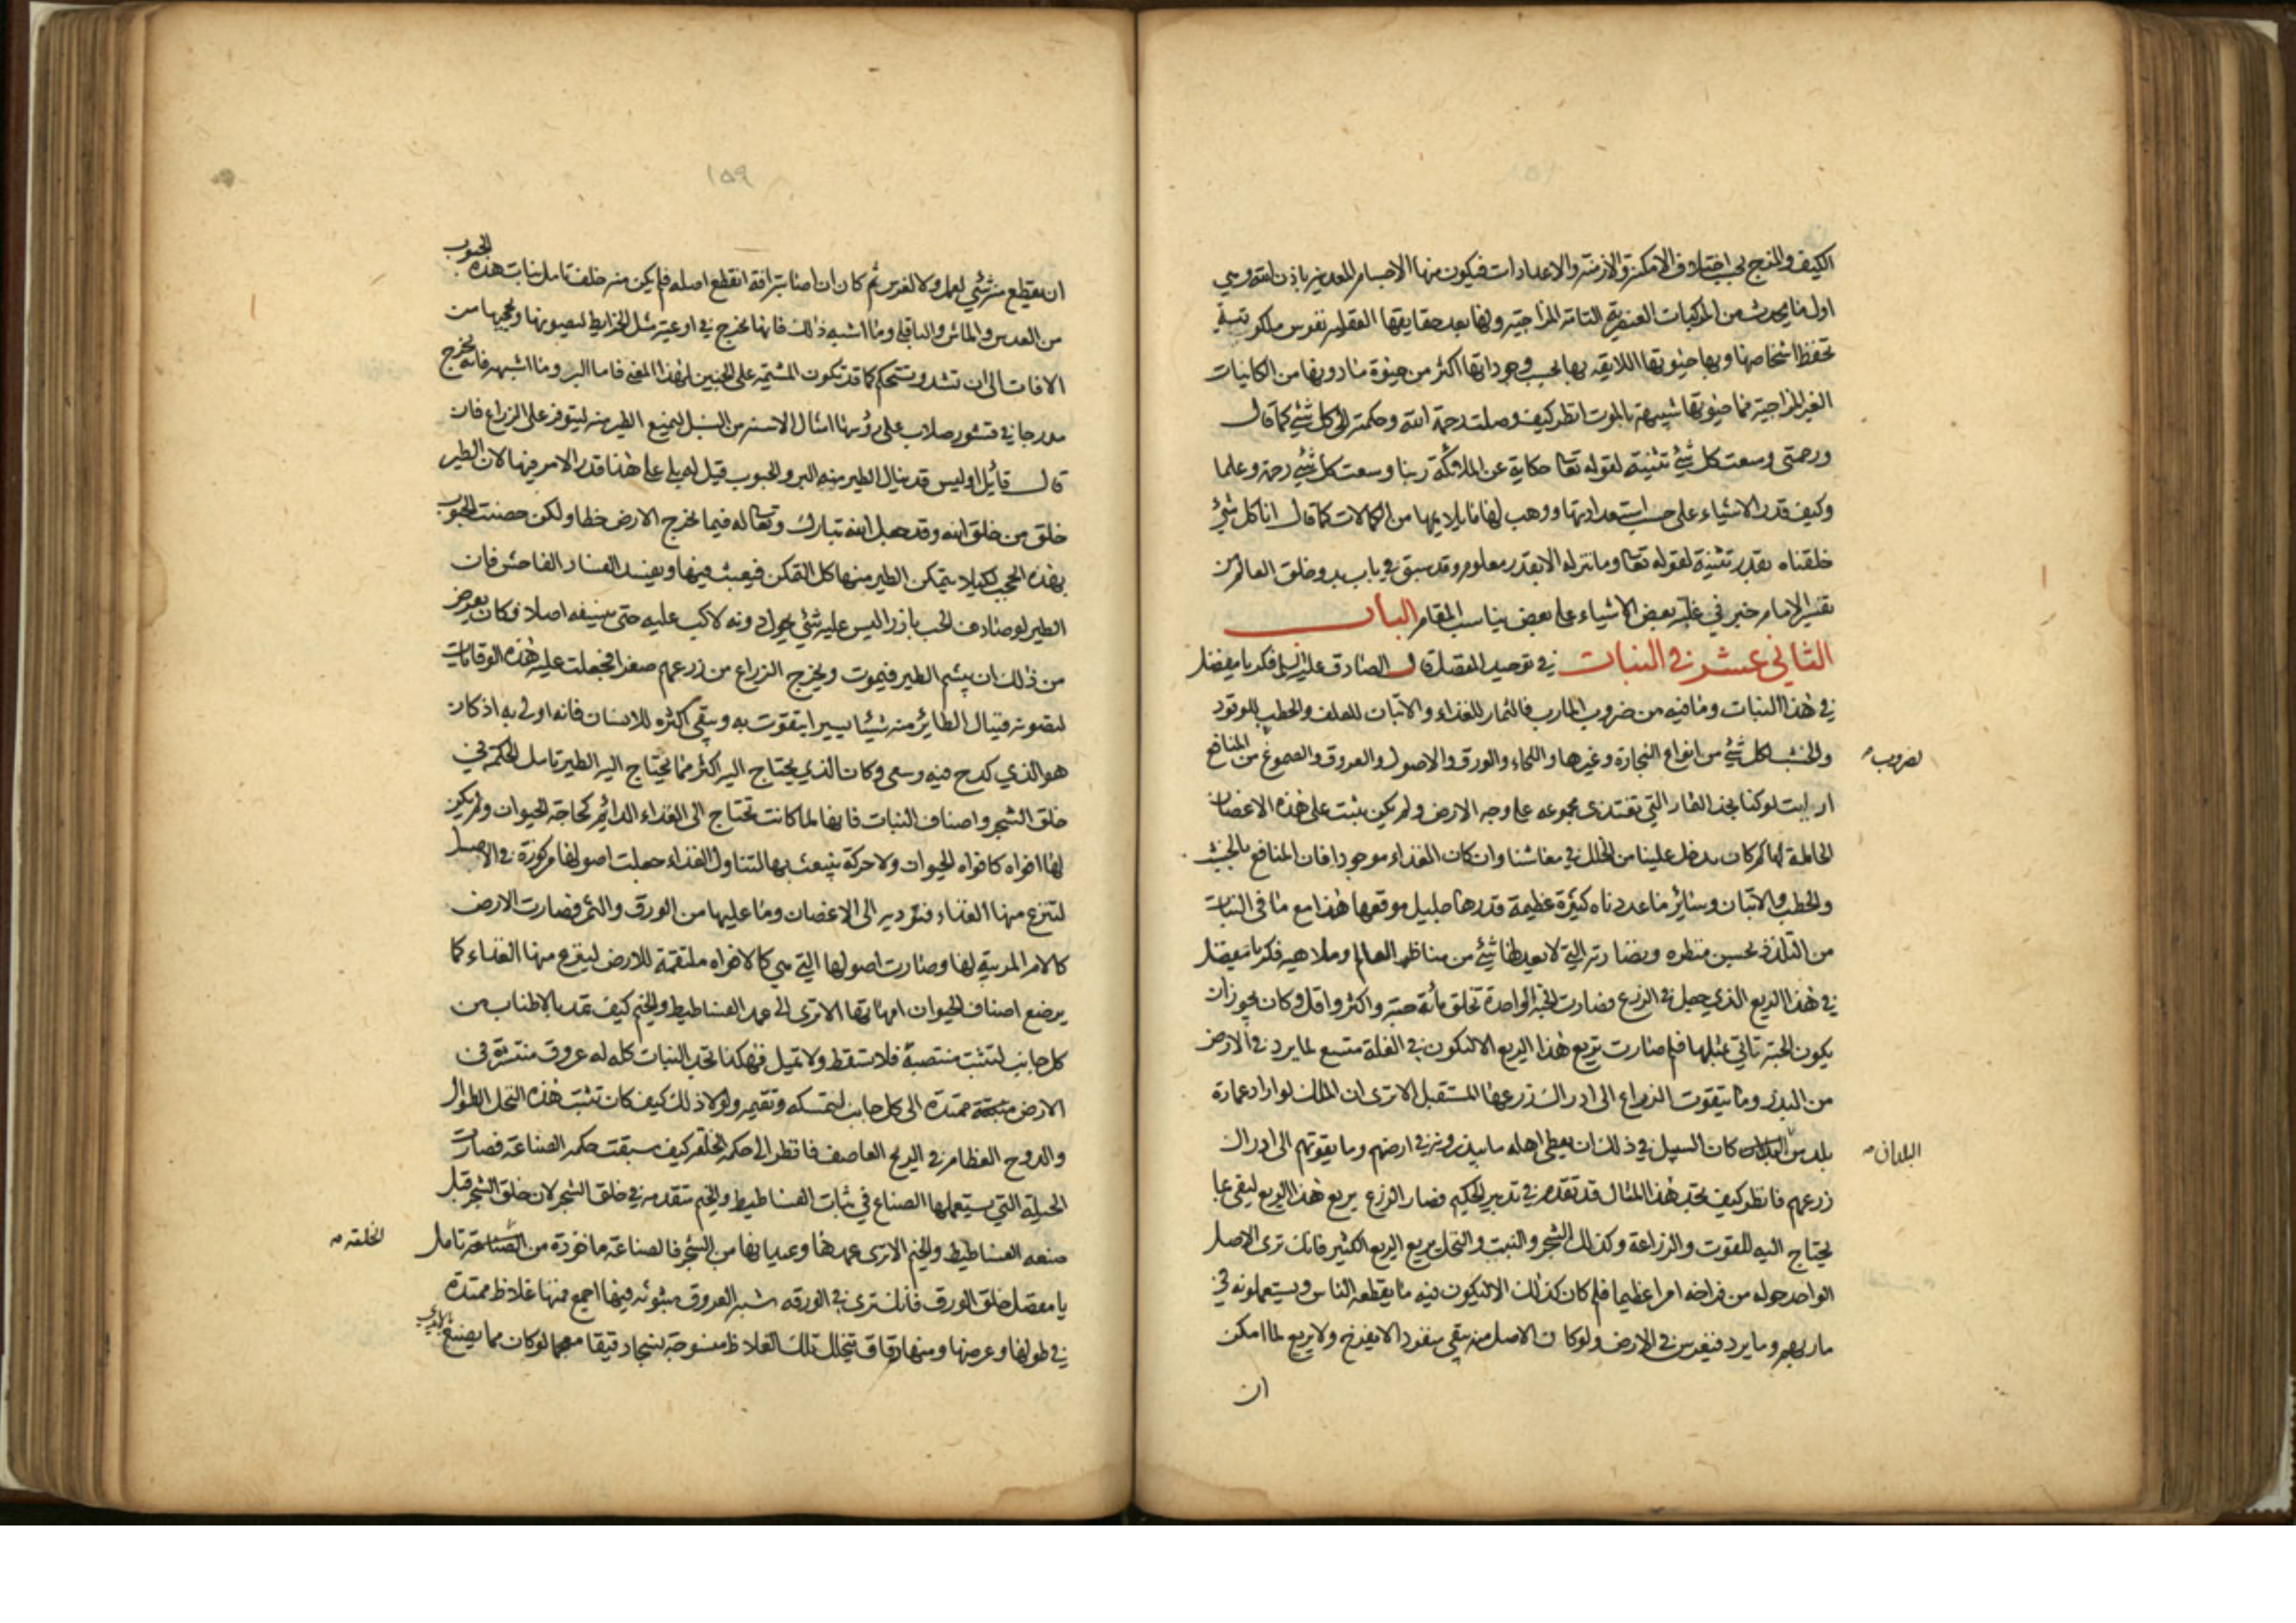 الكيف والمزج بحسب اختلاف الامكنة والازمنة والاعدادات فيكون منها الاجسام المعدنية باذن الله وهي
اول ما يحدث من المركبات العنصرية التامة المزاجية ولها بعد حقايقها العقلية نفوس ملكوتية
تحفظ اشخاصها وبها حيوتها اللايقه بها بحسب وجوداتها اكثر من حيوة ما دونها من الكاينات
الغير المزاجية مما حيوتها شبيهة بالموت انظر كيف وصلت رحمة الله وحكمته الى كل شئ كما قال
ورحمتى وسعت كل شئ تثنيته لقوله تعا حكاية عن الملائكة ربنا وسعت كل شئ رحمة وعلما
وكيف قدر الاشياء على حسب استعداداتها ووهب لها ما يلايمها من الكمالات كما قال انا كل شئ
خلقناه بقدر تثنية لقوله تعا وما ننزله الا بقدر معلوم وقد سبق في باب بدو خلق العالم من
تفسير الامام خبر في غلبة بعض الاشياء على بعض يناسب المقام الباب
الثاني عشر في النبات في توحيد المفضل قال الصادق عليه السلم فكر يا مفضل
في هذا النبات وما فيه من ضروب المارب فالثمار للغذاء والاتبان للعلف والحطب للوقود
والخشب لكل شئ من انواع النجارة وغيرها واللحاء والورق والاصول والعروق والصموغ من المنافع
لضروب
ارايت لو كنا نجد الثمار التي نغتذى مجموعه على وجه الارض ولم يكن تنبت على هذه الاغصان
الحاملة لها كم كان يدخل علينا من الخلل في معاشنا وان كان الغذاء موجودا فان المنافع بالخشب
والحطب والاتبان وسائر ما عددناه كثيرة عظيمة قدرها جليل موقعها هذا مع ما في النبات
من التلذذ بحسن منظره ونضارته التي لا يعدلها شئ من مناظر العالم وملاهيه فكر يا مفضل
في هذا الريع الذي جعل في الزرع فصارت الحبة الواحدة تخلق مائة حبة واكثر واقل وكان يجوز ان
يكون الحبة تاتي بمثلها فلم صارت تريع هذا الريع الا ليكون في الغلة متسع لما يرد في الارض
من البذر وما يتقوت الزراع الى ادراك زرعها المستقبل الا ترى ان الملك لو اراد عمارة
بلد من البلاد كان السبيل في ذلك ان يعطى اهله ما يبذرونه في ارضهم وما يقوتهم الى ادراك
البلدان
زرعهم فانظر كيف تجد هذا المثال قد تقدم في تدبير الحكيم فصار الزرع يريع هذا الريع ليفى بما
يحتاج اليه للقوت والزراعة وكذلك الشجر والنبت والنخل يريع الريع الكثير فانك ترى الاصل
الواحد حوله من فراخه امرا عظيما فلم كان كذلك الا ليكون فيه ما يقطعه الناس ويستعملونه في
ماربهم وما يرد فيغرس في الارض ولو كان الاصل منه يبقى منفردا لا يفرخ ولا يريع لما امكن
ان
١٥٩
ان يقطع منه شئ لعمل ولا لغرس ثم كان ان اصابته افة انقطع اصله فلم يكن منه خلف تامل نبات هذه الحبوب
من العدس والماش والباقلى وما اشبه ذلك فانها تخرج في اوعية مثل الخرايط ليصونها ويحجبها من
الافات الى ان تشد وتستحكم كما قد تكون المشيمة على الجنين لهذا المعنى فاما البر وما اشبهه فانه يخرج
مدرجا في قشور صلاب على رؤسها امثال الاسنه من السنبل ليمنع الطير منه ليتوفر على الزراع فان
قال قائل اوليس قد ينال الطير منه البر والحبوب قيل له بلى على هذا قدر الامر فيها لان الطير
خلق من خلق الله وقد جعل الله تبارك وتعا له فيما يخرج الارض حظا ولكن حصنت الحبوب
بهذه الحجب لكيلا يتمكن الطير منها كل التمكن فيعبث فيها ويفسد الفساد الفاحش فان
الطير لو صادف الحب بارزا ليس عليه شئ يحول دونه لاكب عليه حتى ينسفه اصلا فكان يعرض
من ذلك ان يبشم الطير فيموت ويخرج الزراع من زرعهم صفرا فجعلت عليه هذه الوقايات
لتصونه فينال الطائر منه شيئا يسيرا يتقوت به ويبقى اكثره للانسان فانه اولى به اذ كان
هو الذي كدح فيه وسعى وكان الذي يحتاج اليه اكثر مما يحتاج اليه الطير تامل الحكمة في
خلق الشجر واصناف النبات فانها لما كانت تحتاج الى الغذاء الدائم كحاجة الحيوان ولم يكن
لها افواه كافواه الحيوان ولا حركة ينبعث بها لتناول الغذاء جعلت اصولها مركوزة في الارض
لتنزع منها الغذاء فتؤديه الى الاغصان وما عليها من الورق والثمر فصارت الارض
كالام المربية لها وصارت اصولها التي هي كالافواه ملتقمة للارض لينزع منها الغذاء كما
يرضع اصناف الحيوان امهاتها الا ترى الى عمد الفساطيط والخيم كيف تمد بالاطناب من
كل جانب لتثبت منتصبة فلا تسقط ولا تميل فهكذا تجد النبات كله له عروق منتشرة في
الارض ممتدة الى كل جانب لتمسكه وتقيمه ولولا ذلك كيف كان تثبت هذه النخل الطوال
والدوح العظام في الريح العاصف فانظر الى حكمة الخلقة كيف سبقت حكمة الصناعة فصارت
الحيلة التي يستعملها الصناع في ثبات الفساطيط والخيم متقدمة في خلق الشجر لان خلق الشجر قبل
صنعه الفساطيط والخيم الا ترى عمدها وعيدانها من الشجر فالصناعة ماخوذة من الصناعة تامل
الخلقة
يا مفضل خلق الورق فانك ترى في الورقه شبه العروق مبثوثه فيها اجمع فمنها غلاظ ممتدة
في طولها وعرضها ومنها دقاق تتخلل تلك الغلاظ منسوجة نسجا دقيقا معجما لو كان مما يصنع بالايدي